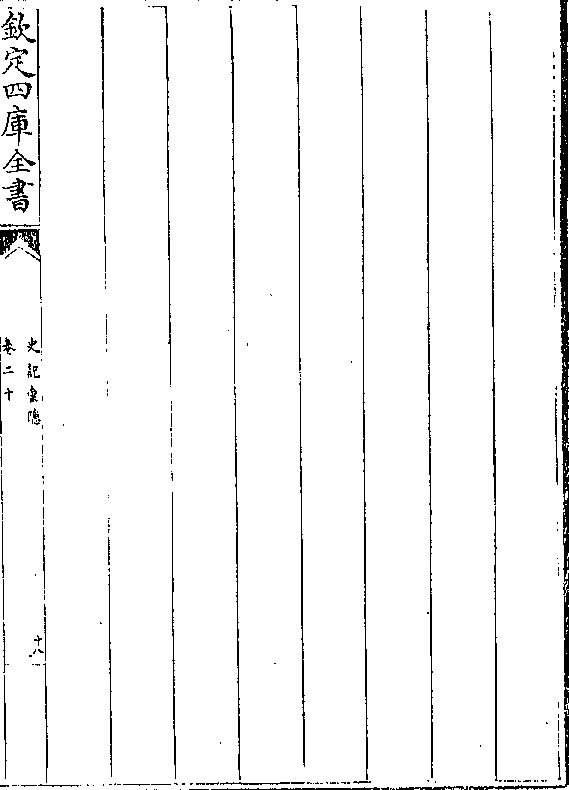 欽定四庫全書
史記索隱
卷二十
十八